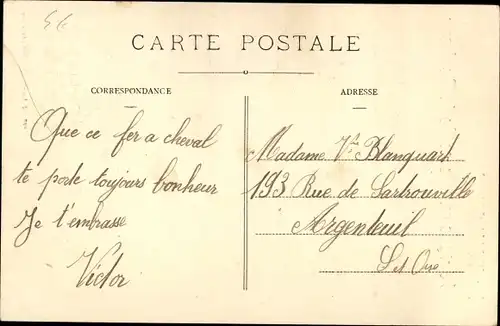 CARTE POSTALE
CORRESPONDANCE
Que ce fer a cheval
te porte toujours bonheur
Je t'embrasse
Victor
ADRESSE
Madame Vve Blanquart
193 Rue de Sartrouville
Argenteuil
S et Oise